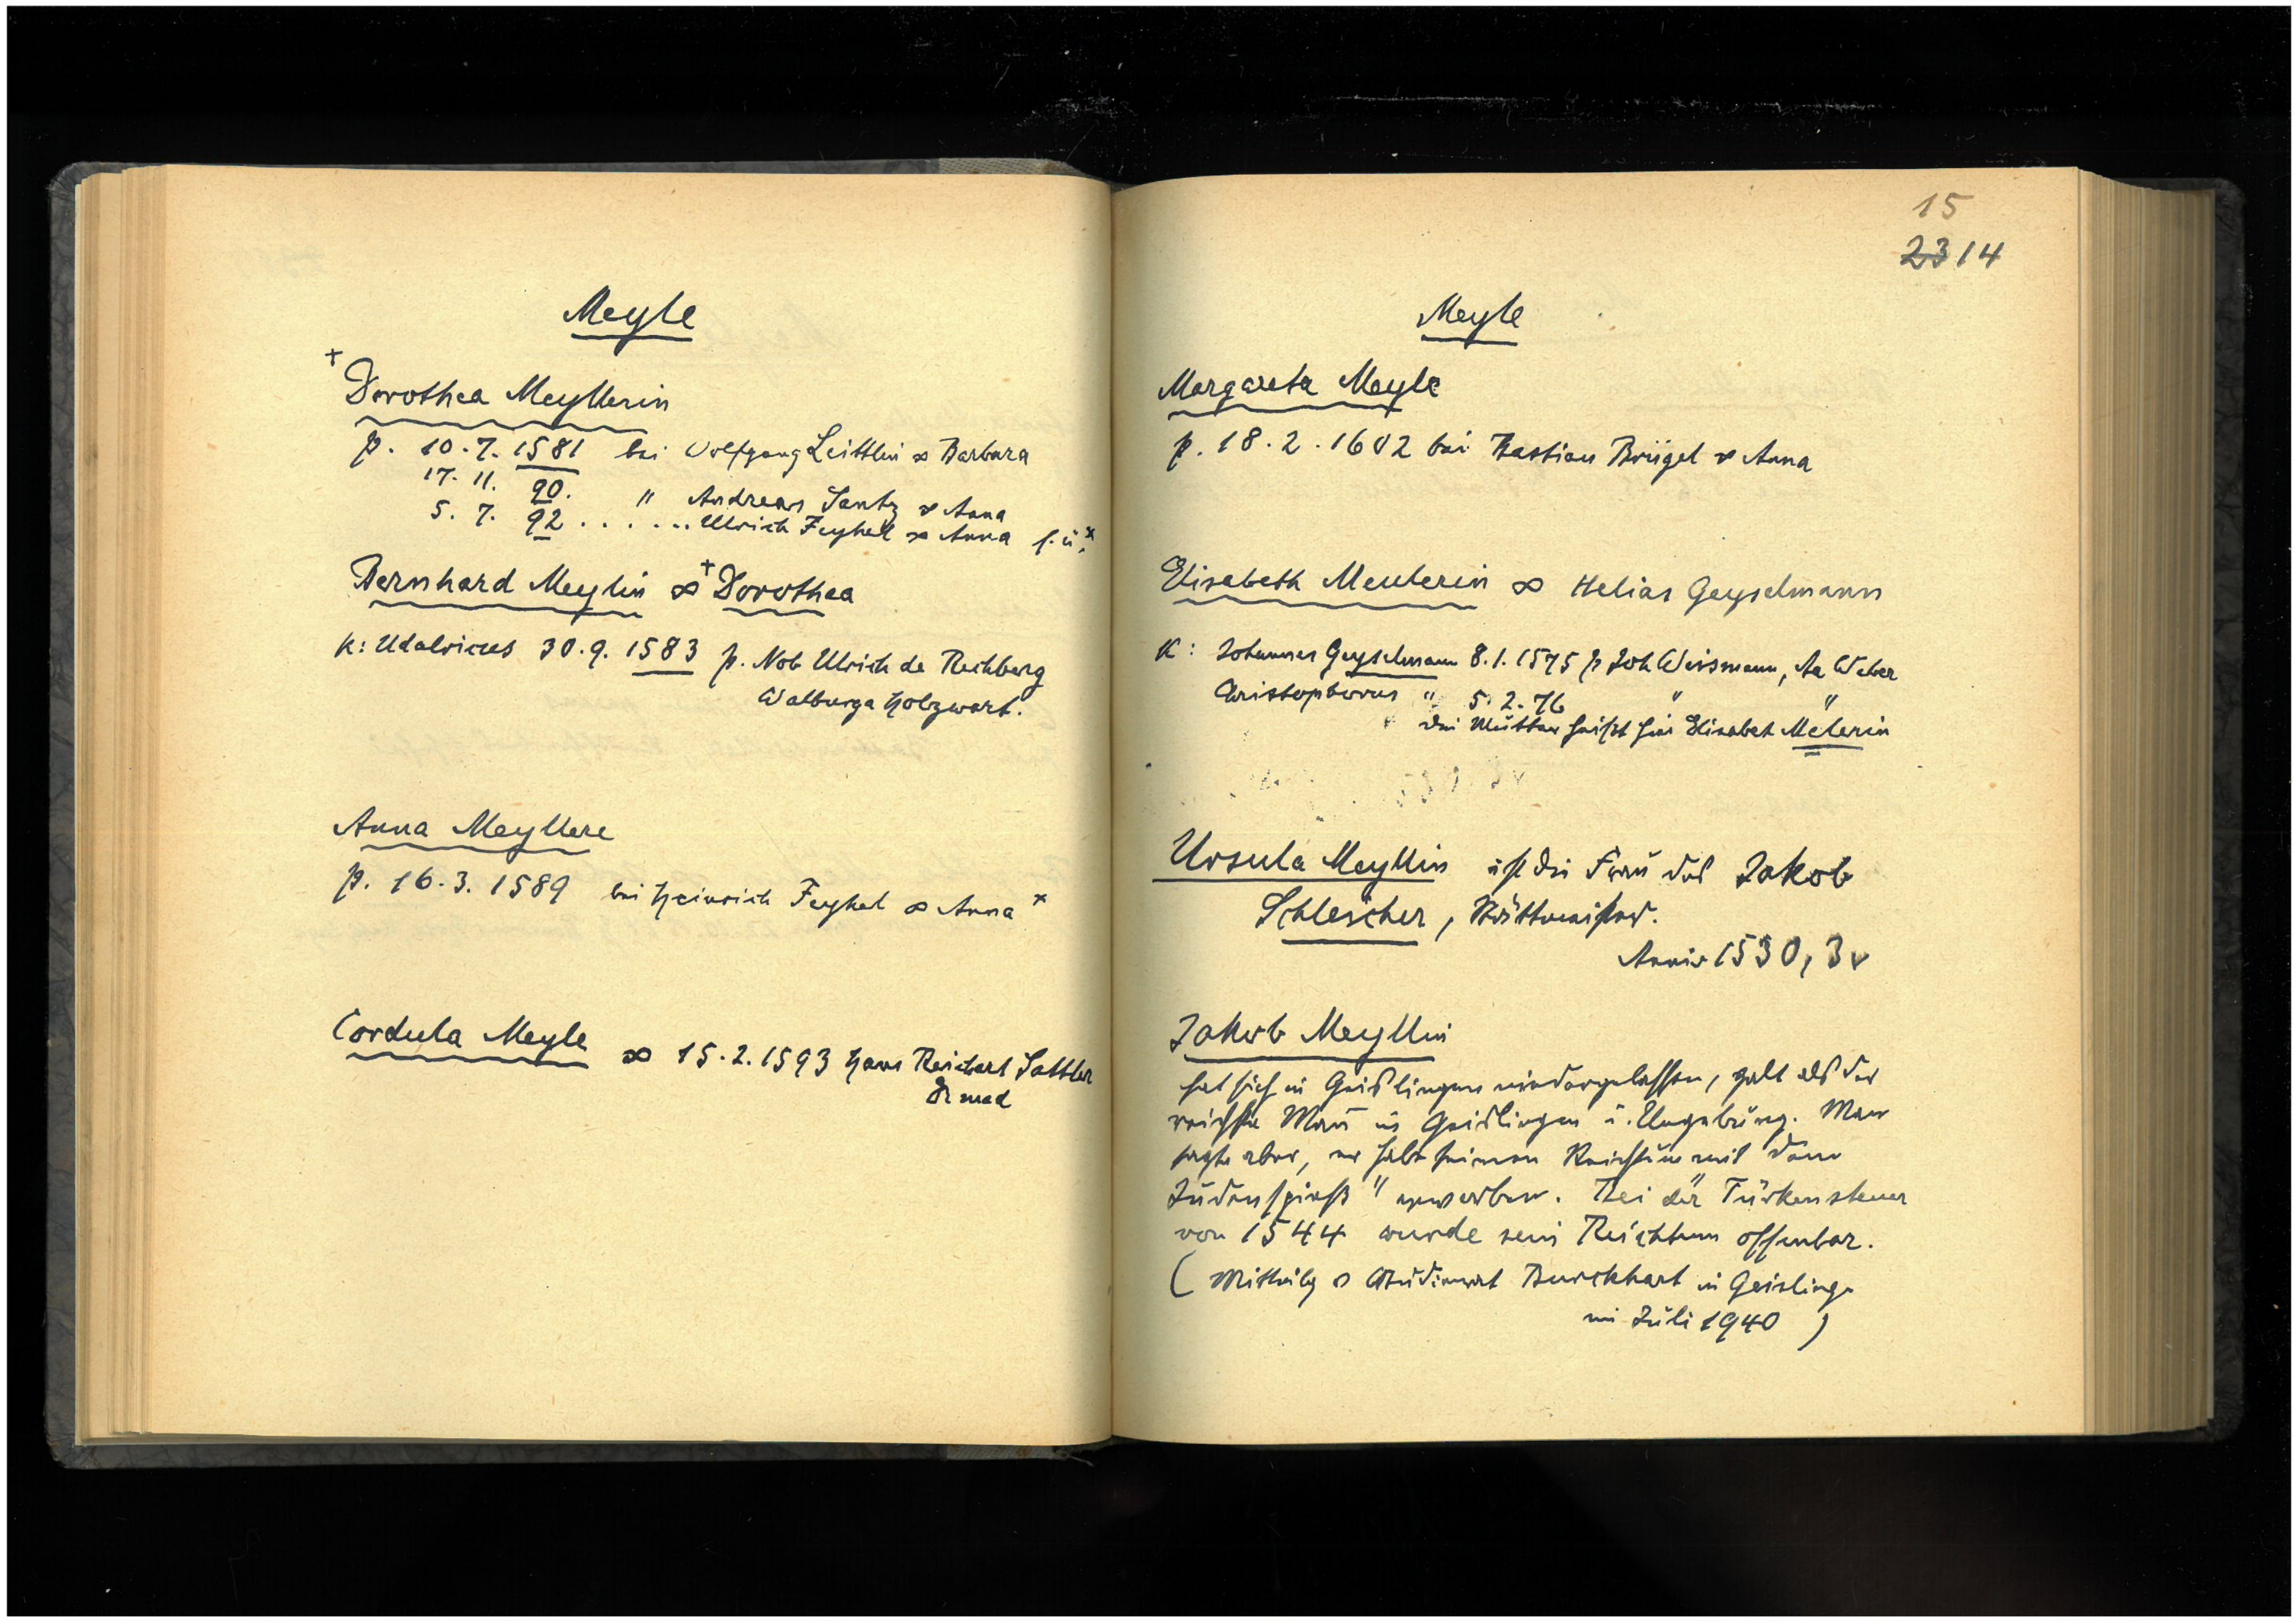 Meyle
+
Dorothea Meyllerin
p. 10.7. 1581 bei Wolfgang Leittlin ∞ Barbara
17. 11. 90. " Andreas Santz ∞ Anna
5. 7. 92 . . . . . . Ulrich Feyhel ∞ Anna s. u. x
Bernhard Meylin ∞ + Dorothea
K: Udalricus 30.9. 1583 p. Nob Ulrich de Rechberg
Walburga Holzwart.
Anna Meyllere
p. 16.3. 1589 bei Heinrich Feyhel ∞ Anna x
Cordula Meyle ∞ 15.2.1593 Hans Reichart Sattler
Dr med
15
23 14
Meyle
Margareta Meyle
p. 18.2.1602 bei Bastian Brügel ∞ Anna
Elisabeth Meulerin ∞ Helias Geyselmann
K: Johannes Geyselmann 8.1.1575 p Joh Weismann, Aa Weber
Christophorus " 5.2.76 " "
die Mutter heißt hier Elisabet Melerin
Ursula Meyllin ist die Frau des Jakob
Schlescher, Stättmeister.
Anniv 1530, 3v
Jakob Meyllin
hat sich in Geislingen niedergelassen, galt als der
reichste Mann in Geislingen u. Umgebung. Man
sagte aber, er habe seinen Reichtum mit dem
Judenspieß" erworben. Bei der Türkensteuer
von 1544 wurde sein Reichtum offenbar.
(Mitteilg v Studienrat Burckhart in Geislingen
im Juli 1940)